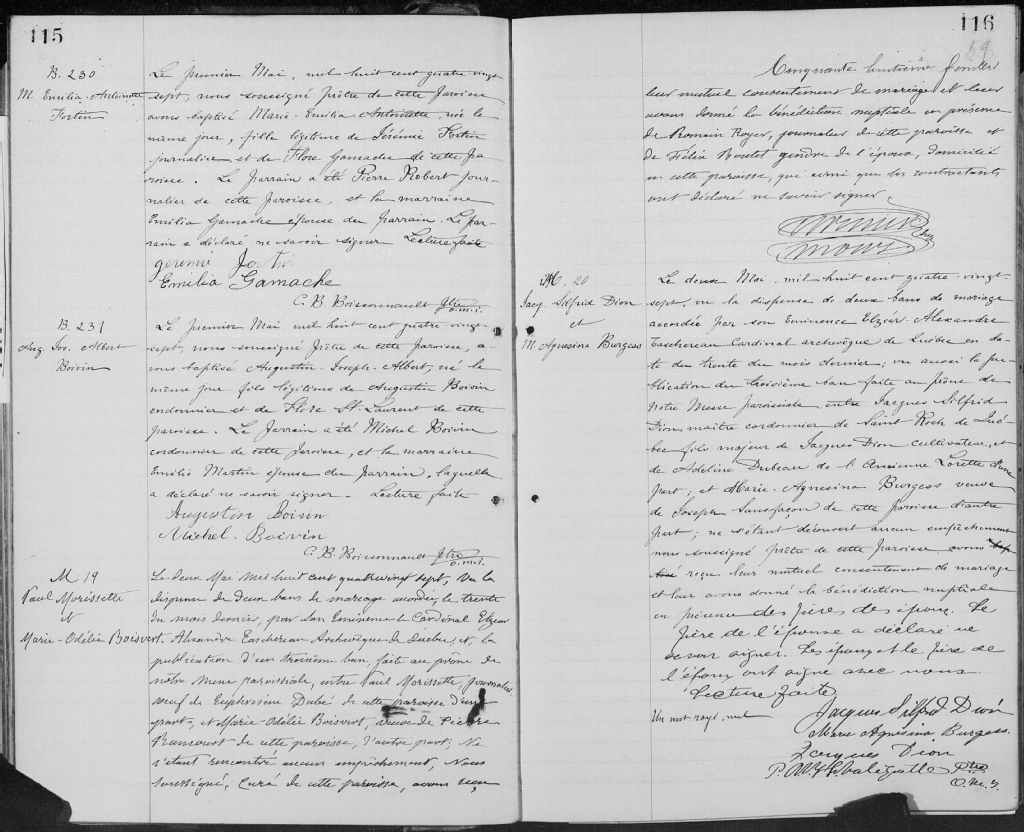 115
B. 230
M. Emilia-Antoinette
Fortin
Le premier Mai, mil huit cent quatre-vingt
sept, nous soussigné prêtre de cette Paroisse
avons baptisé Marie-Emilia Antoinette, née le
même jour, fille légitime de Jérémie Fortin
journalier et de Flore Gamache de cette pa
roisse. Le parrain a été Pierre Robert jour-
nalier de cette paroisse, et la marraine
Emilia Gamache épouse du parrain. Le par-
rain a déclaré ne savoir signer Lecture faite
geremie Fortin
Emilia Gamache
C. B. Boissonnault ptre
o.m.i.
B. 231
Aug. Jos. Albert
Boivin
Le premier Mai mil huit cent quatre-vingt-
sept, nous soussigné Prêtre de cette Paroisse, a-
vons baptisé Augustin-Joseph-Albert, né le
même jour fils légitime de Augustin Boivin
cordonnier et de Flore St-Laurent de cette
paroisse. Le Parrain a été Michel Boivin
cordonnier de cette Paroisse, et la marraine
Emilie Martin épouse du Parrain, laquelle
a déclaré ne savoir signer. Lecture faite
Augustin Boivin
Michel Boivin
C. B. Boissonnault Ptre
o.m.i.
M 19
Paul Morissette
et
Marie-Odélie Boisvert.
Le deux Mai mil huit cent quatrevingt sept, vu la
dispense de deux bans de mariage accordée, le trente
du mois dernier, par son Eminence le Cardinal Elzéar
Alexandre Taschereau Archevêque de Québec et la
publication d'un troisième ban, faite au prône de
notre messe paroissiale, entre Paul Morissette, journalier
veuf de Euphrosine Dubé de cette paroisse d'une
part, et Marie-Odélie Boisvert, veuve de Pierre
Rancourt de cette paroisse, d'autre part; Ne
s'étant rencontré aucun empêchement, Nous
soussigné, Curé de cette paroisse, avons reçu
116
Cinquante huitième feuillet
leur mutuel consentement de mariage et leur
avons donné la bénédiction nuptiale en présence
de Romain Royer, journalier de cette paroisse et
de Félix Boutet gendre de l'époux, domicilié
en cette paroisse, qui ainsi que les contractants
ont déclaré ne savoir signer
M. 20
Jacq. Silfrid Dion
et
M. Agnesina Burgess
Le deux Mai mil huit cent quatre-vingt-
sept, vu la dispense de deux bans de mariage
accordée par son Eminence Elzéar-Alexandre
Taschereau Cardinal archevêque de Québec en da-
te du trente du mois dernier; vu aussi la pu-
blication du troisième ban faite au prône de
notre Messe paroissiale entre Jacques Silfrid
Dion maître cordonnier de Saint Roch de Qué-
bec fils majeur de Jacques Dion cultivateur, et
de Adeline Dubeau de l'Ancienne Lorette d'une
part; et Marie-Agnesina Burgess veuve
de Joseph Sansfaçon de cette paroisse d'autre
part; ne s'étant découvert aucun empêchement
nous soussigné prêtre de cette paroisse avons
reçu leur mutuel consentement de mariage
et leur avons donné la bénédiction nuptiale
en présence des Pères des époux. Le
père de l'épouse a déclaré ne
savoir signer. Les époux et le père de
l'époux ont signé avec nous.
Lecture faite
Un mot rayé nul
Jacques Silfrid Dion
Marie Agnesina Burgess
Jacques Dion
Ptre
O.M.I.